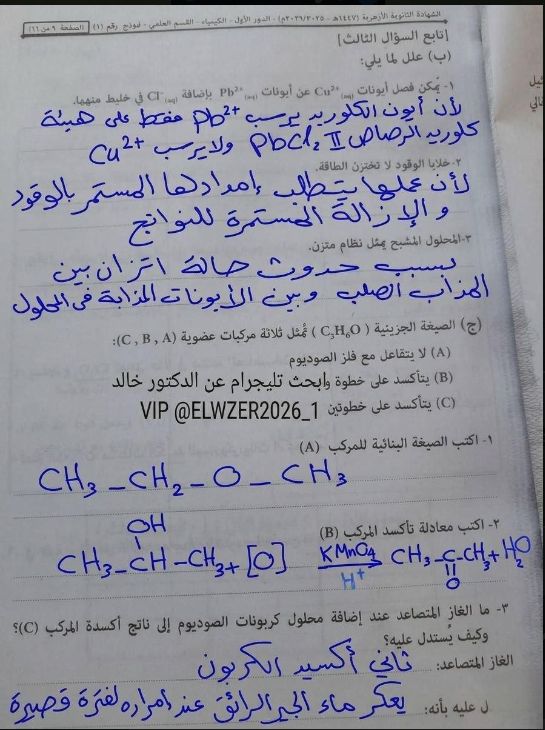 الشهادة الثانوية الأزهرية (١٤٤٧هـ - ٢٠٢٥/٢٠٢٦م) - الدور الأول - الكيمياء - القسم العلمي - نموذج رقم (١) الصفحة ٩ من ١٦
[تابع السؤال الثالث]
(ب) علل لما يلي:
١- يُمكن فصل أيونات Cu²⁺(aq) عن أيونات Pb²⁺(aq) بإضافة Cl⁻(aq) في خليط منهما.
لأن أيون الكلوريد يرسب Pb²⁺ فقط على هيئة
كلوريد الرصاص II PbCl₂ ولا يرسب Cu²⁺
٢- خلايا الوقود لا تختزن الطاقة.
لأن عملها يتطلب إمدادها المستمر بالوقود
والإزالة المستمرة للنواتج
٣- المحلول المشبع يمثل نظام متزن.
بسبب حدوث حالة اتزان بين
المذاب الصلب وبين الأيونات المذابة فى المحلول
(ج) الصيغة الجزيئية (C₃H₈O) تُمثل ثلاثة مركبات عضوية (C , B , A):
(A) لا يتفاعل مع فلز الصوديوم
(B) يتأكسد على خطوة وابحث تليجرام عن الدكتور خالد
(C) يتأكسد على خطوتين VIP @ELWZER2026_1
١- اكتب الصيغة البنائية للمركب (A)
CH₃ – CH₂ – O – CH₃
٢- اكتب معادلة تأكسد المركب (B)
OH
CH₃ – CH – CH₃ + [O] KMnO₄ H⁺ → CH₃ – C – CH₃ + H₂O
O
٣- ما الغاز المتصاعد عند إضافة محلول كربونات الصوديوم إلى ناتج أكسدة المركب (C)؟
وكيف يُستدل عليه؟
الغاز المتصاعد: ثاني أكسيد الكربون
ل عليه بأنه: يعكر ماء الجير الرائق عند امراره لفترة قصيرة